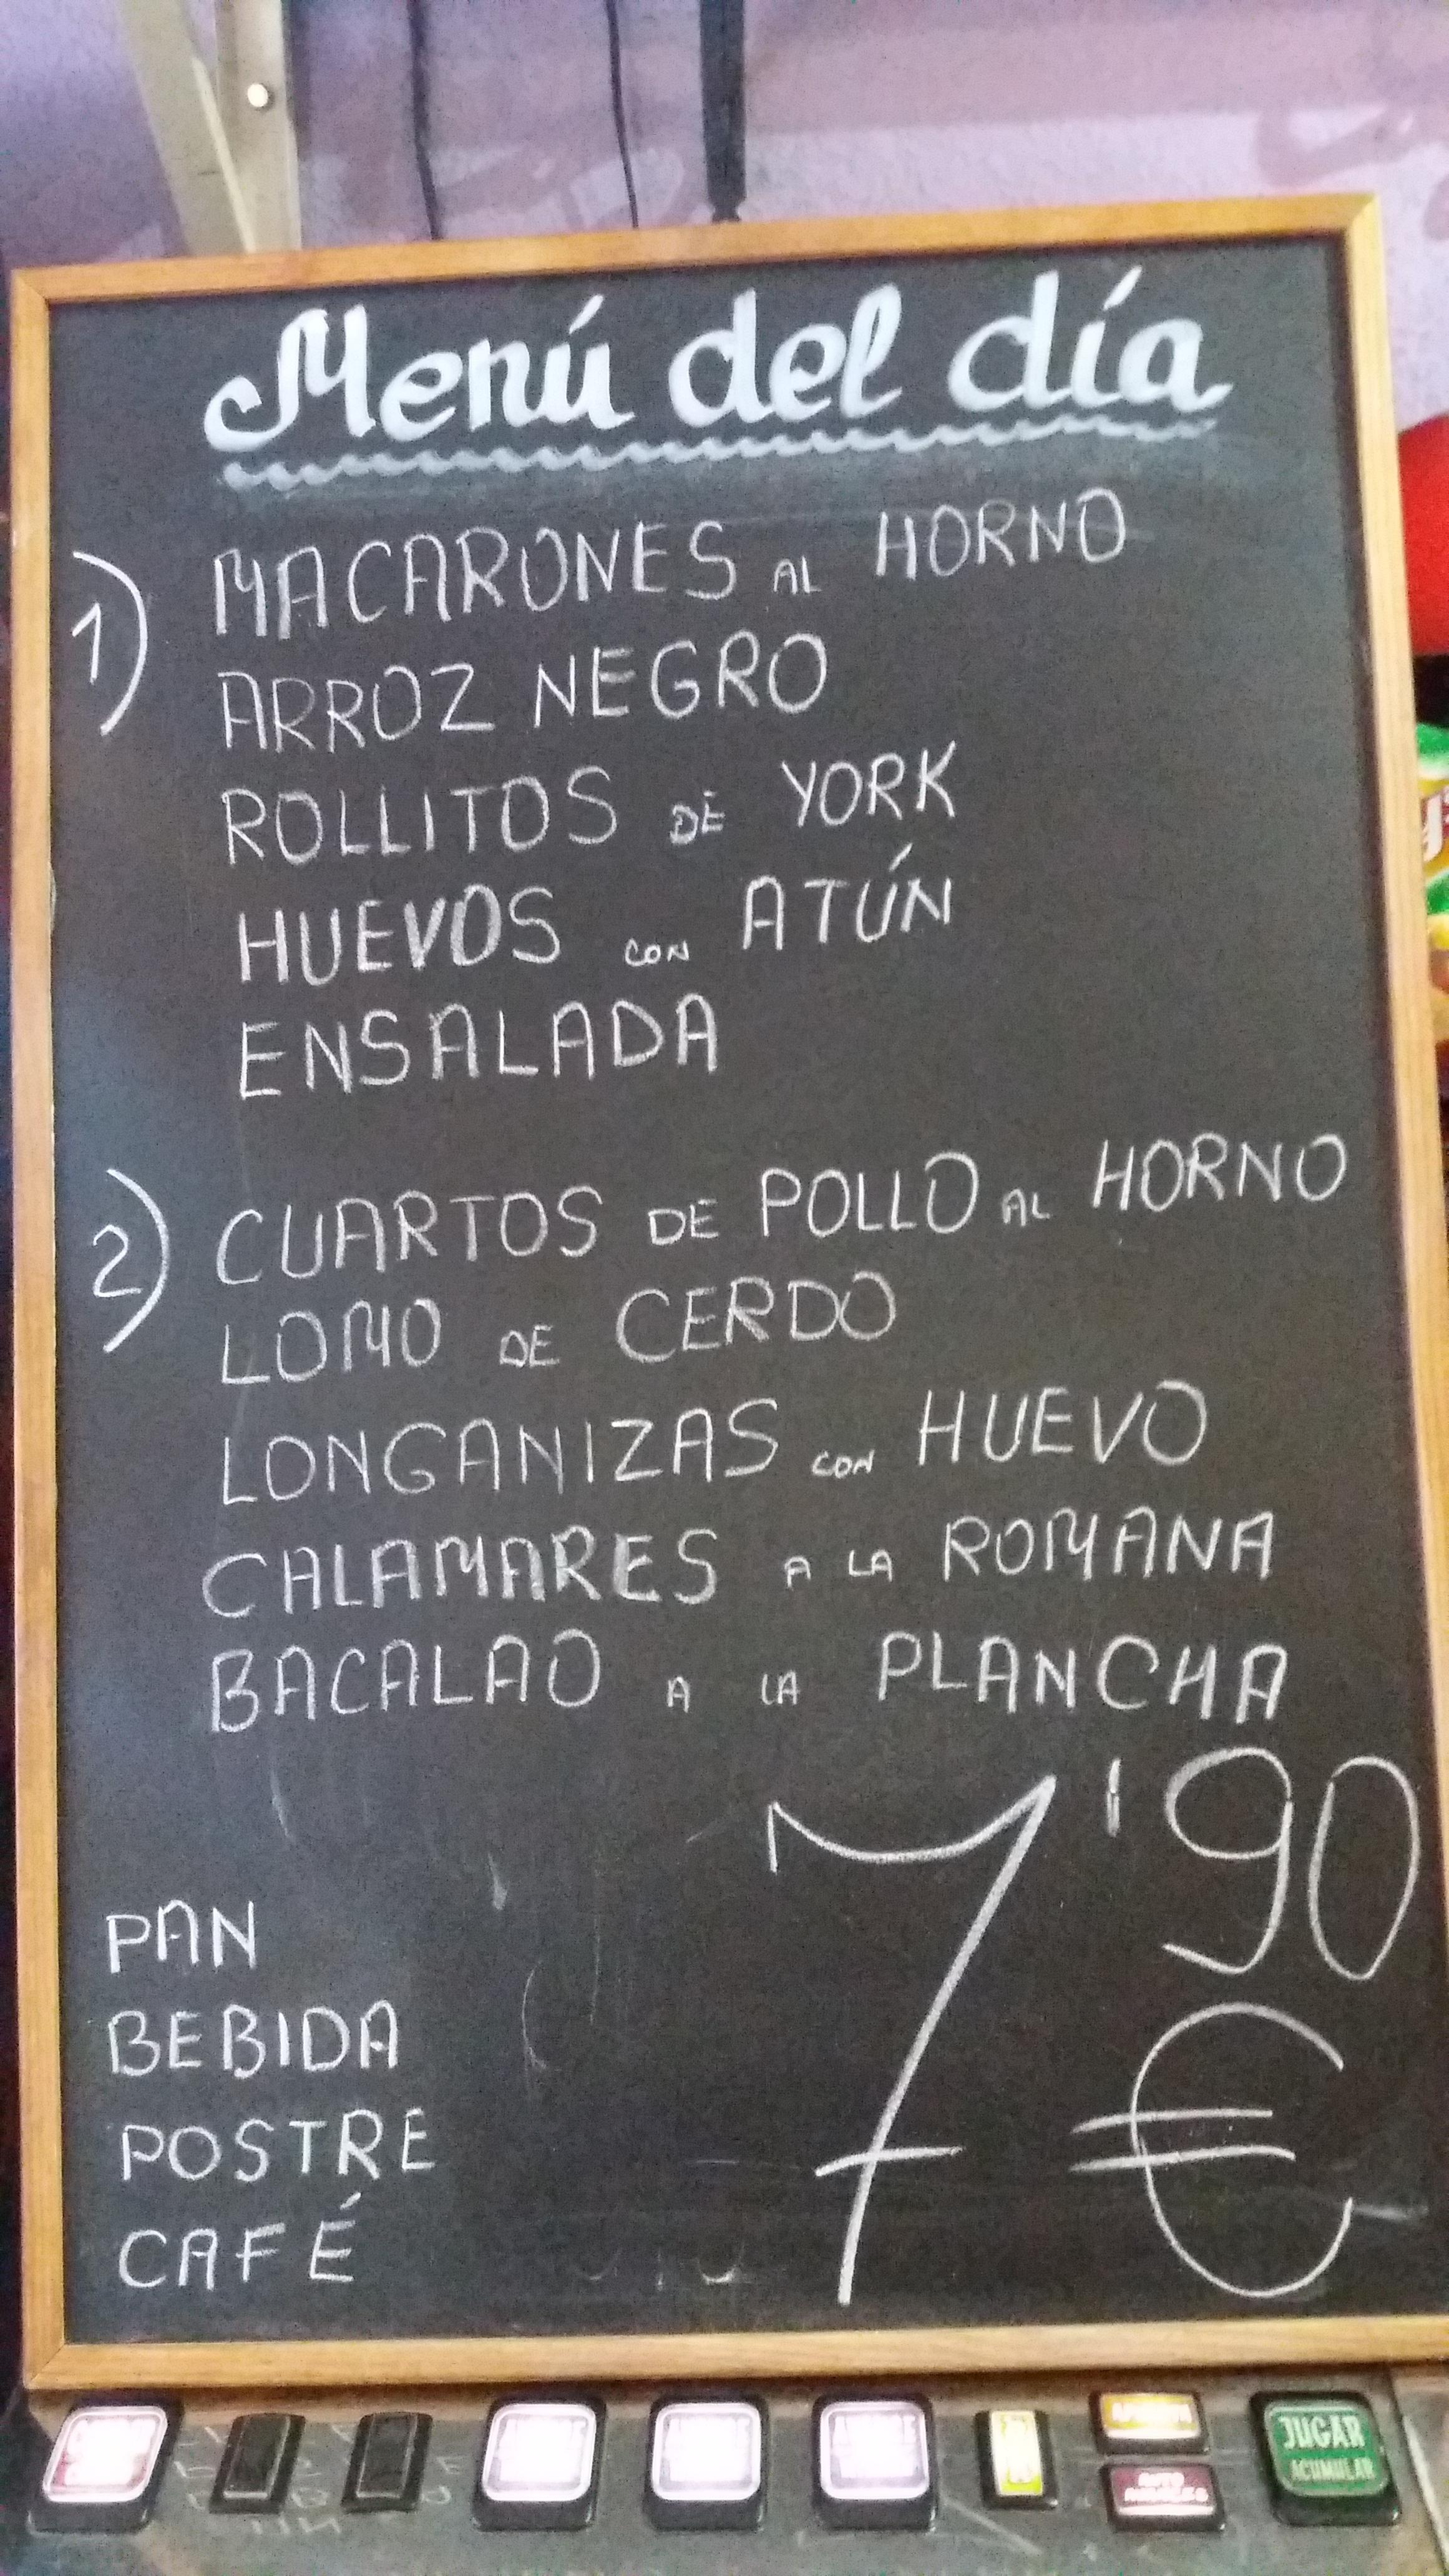 Menú del día
1) MACARONES AL HORNO
ARROZ NEGRO
ROLLITOS DE YORK
HUEVOS CON ATÚN
ENSALADA
2) CUARTOS DE POLLO AL HORNO
LOMO DE CERDO
LONGANIZAS CON HUEVO
CALAMARES A LA ROMANA
BACALAO A LA PLANCHA
7'90
€
PAN
BEBIDA
POSTRE
CAFÉ
JUGAR
ACUMULAR